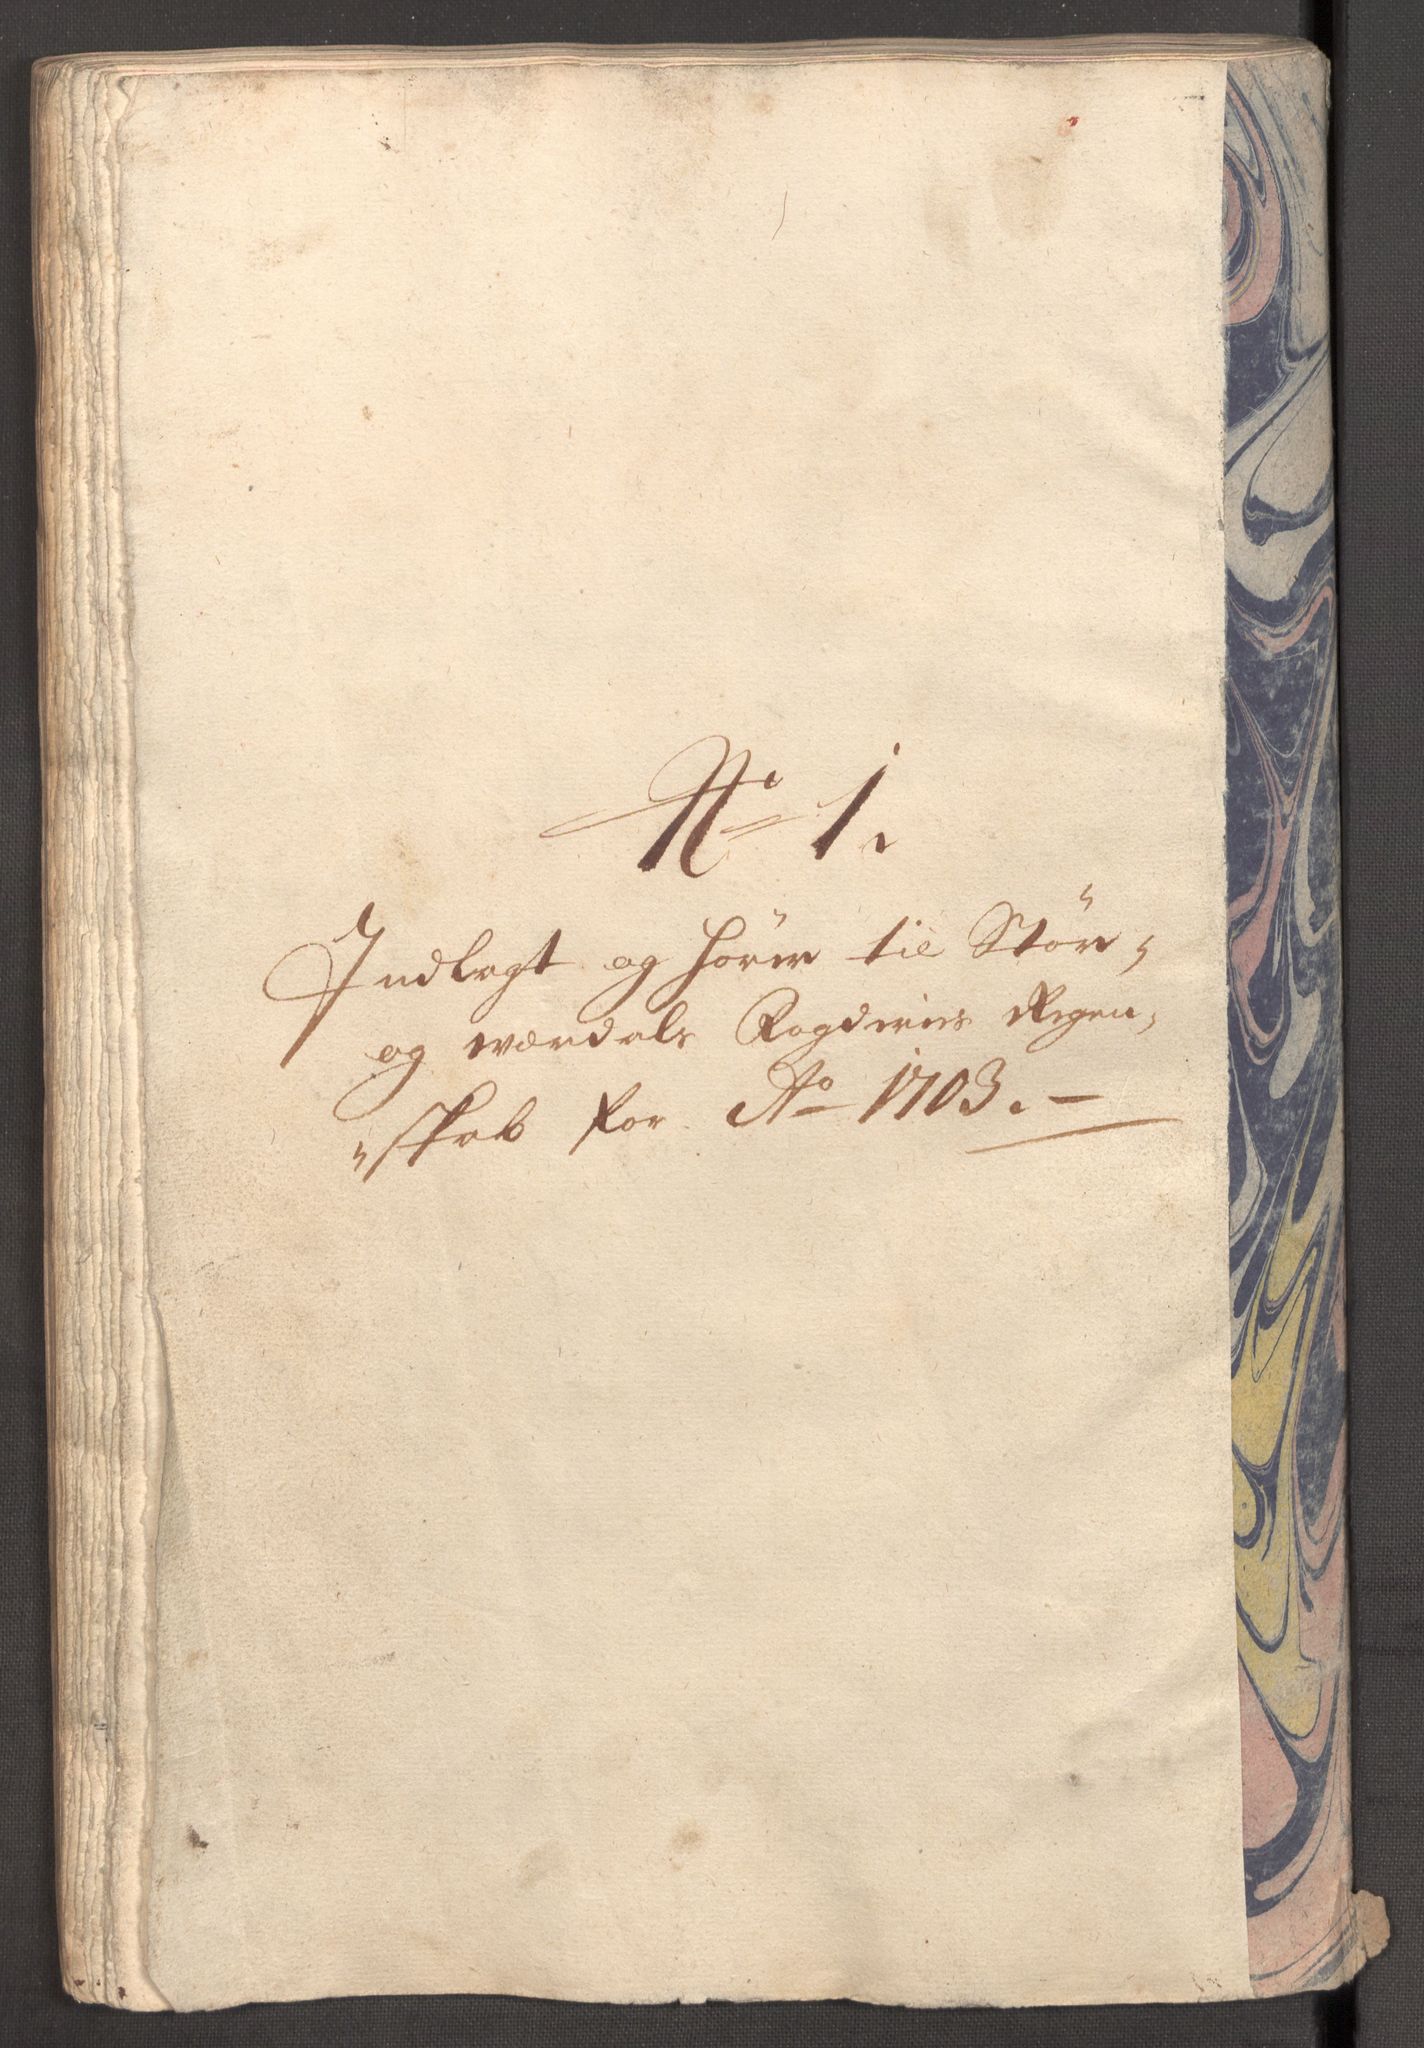 No 1.
Indlagt og hörer til Stör-
og wærdals Fogderies Regen-
skab for Ao 1703. -